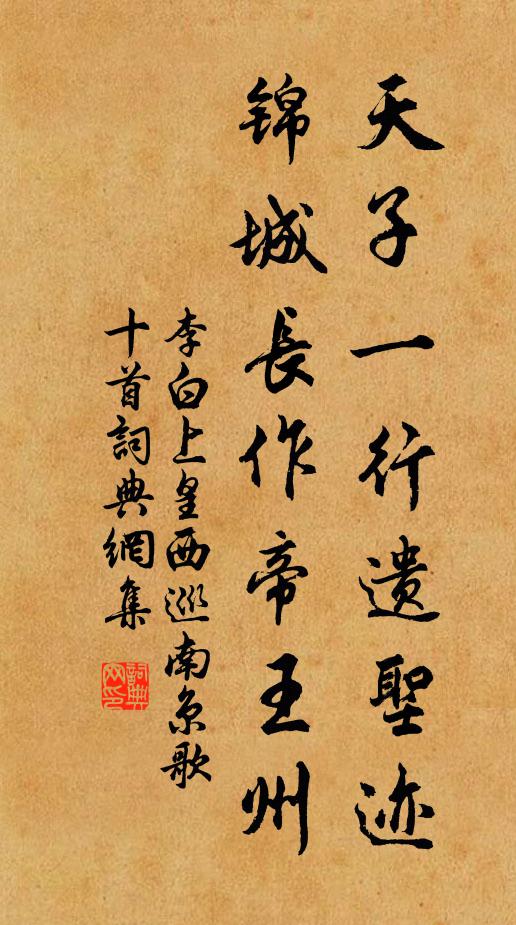 天子一行遗聖迹
锦城長作帝王州
李白上皇西巡南京歌
十首詞典網集
詞典网印